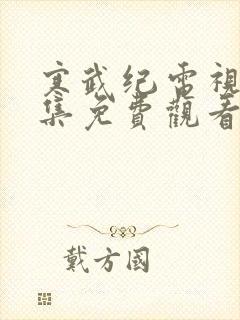 寒武纪電視
集免費觀看
戴方國